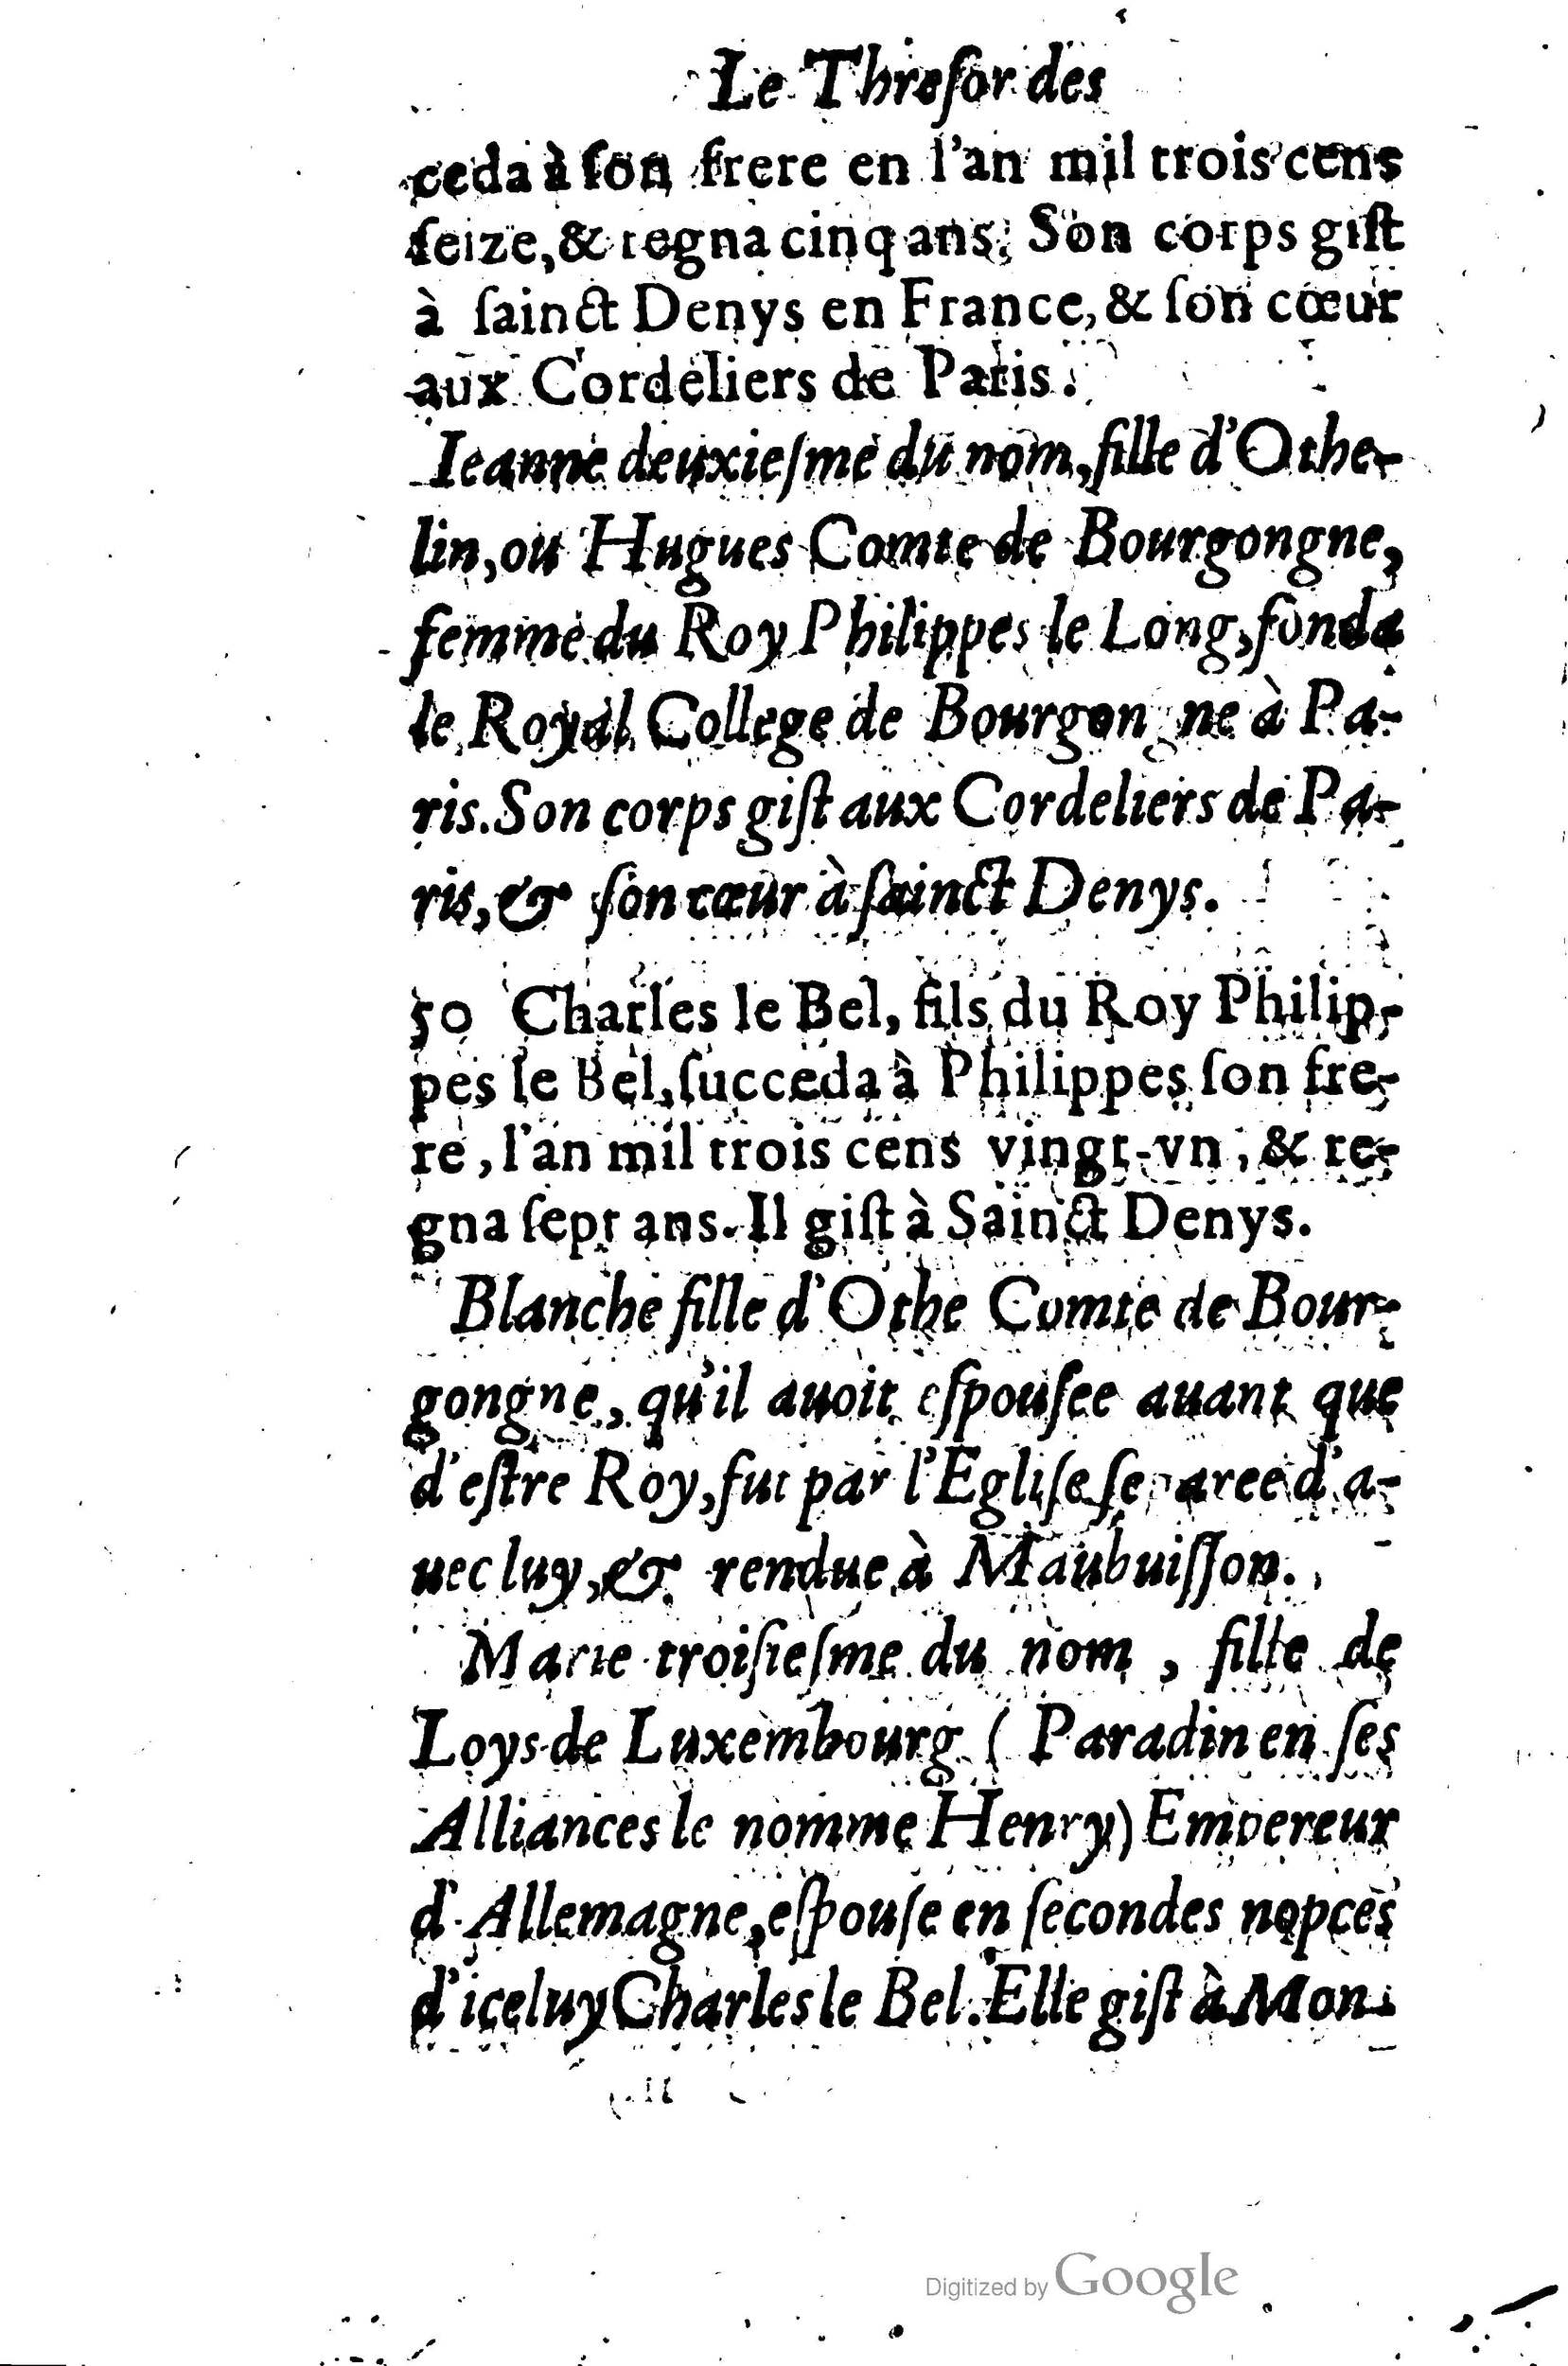 Le Threſor des
ceda à ſon frere en l'an mil trois cens
ſeize, & regna cinq ans. Son corps giſt
à ſainct Denys en France, & ſon cœur
aux Cordeliers de Paris.
Ieanne deuxieſme du nom, fille d'Othe-
lin, ou Hugues Comte de Bourgongne,
femme du Roy Philippes le Long, fonda
le Royal College de Bourgongne à Pa-
ris. Son corps giſt aux Cordeliers de Pa-
ris, & ſon cœur à ſainct Denys.
50 Charles le Bel, fils du Roy Philip-
pes le Bel, ſucceda à Philippes ſon fre-
re, l'an mil trois cens vingt-vn, & re-
gna ſept ans. Il giſt à Sainct Denys.
Blanche fille d'Othe Comte de Bour-
gongne, qu'il auoit eſpouſee auant que
d'eſtre Roy, fut par l'Egliſe ſeparee d'a-
uec luy, & rendue à Maubuiſſon.
Marie troiſieſme du nom, fille de
Loys de Luxembourg (Paradin en ſes
Alliances le nomme Henry) Empereur
d'Allemagne, eſpouſe en ſecondes nopces
d'iceluy Charles le Bel. Elle giſt à Mon-
Digitized by Google